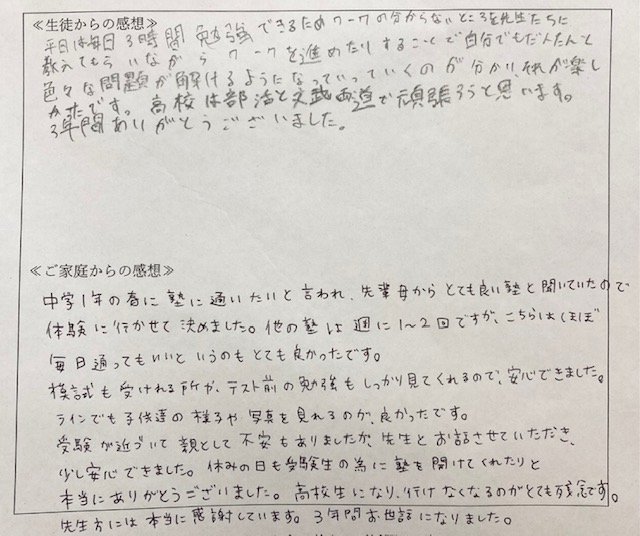 ≪生徒からの感想≫
平日は毎日3時間勉強できるためワークの分からないところを先生たちに
教えてもらいながらワークを進めたりすることで自分でもだんだんと
色々な問題が解けるようになっていっていくのが分かりそれが楽し
かったです。高校は部活と文武両道で頑張ろうと思います。
3年間ありがとうございました。
≪ご家庭からの感想≫
中学1年の春に塾に通いたいと言われ、先輩母からとても良い塾と聞いていたので
体験に行かせて決めました。他の塾は週に1〜2回ですが、こちらはほぼ
毎日通ってもいいというのもとても良かったです。
模試も受けれる所や、テスト前の勉強もしっかり見てくれるので、安心できました。
ラインでも子供達の様子や写真を見れるのが、良かったです。
受験が近づいて親として不安もありましたが、先生とお話させていただき、
少し安心できました。休みの日も受験生の為に塾を開けてくれたりと
本当にありがとうございました。高校生になり、行けなくなるのがとても残念です。
先生方には本当に感謝しています。3年間お世話になりました。